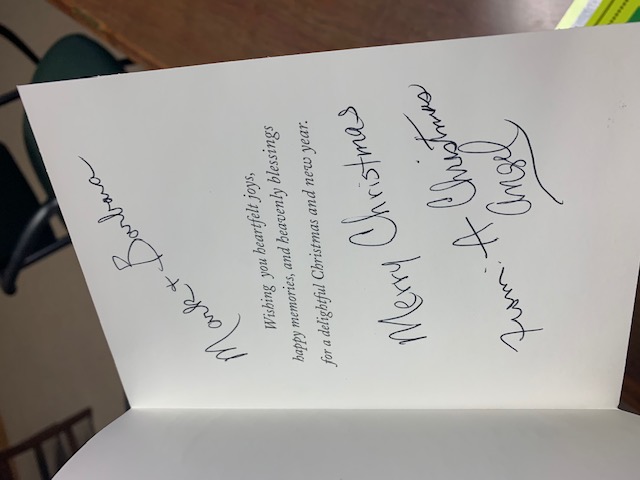 Mark + Barbara
Wishing you heartfelt joys,
happy memories, and heavenly blessings
for a delightful Christmas and new year.
Merry Christmas
from: A Christmas
Angel